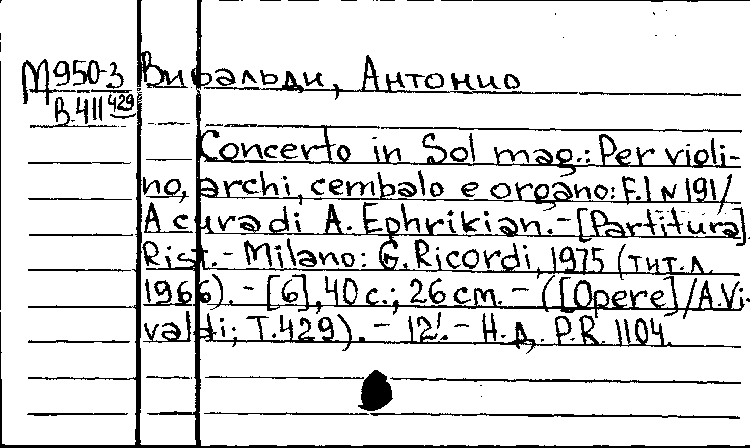 М950-3 Вивальди, Антонио
В.411 429
Concerto in Sol mag.: Per violi-
no, archi, cembalo e organo: F.I N 191/
A cura di A. Ephrikian.-[Partitura]
Rist.- Milano: G. Ricordi, 1975 (тит.л.
1966).- [6], 40 с.; 26 cm.- ([Opere]/A.Vi-
valdi; Т.429).- 12!.- Н.д. P.R. 1104.